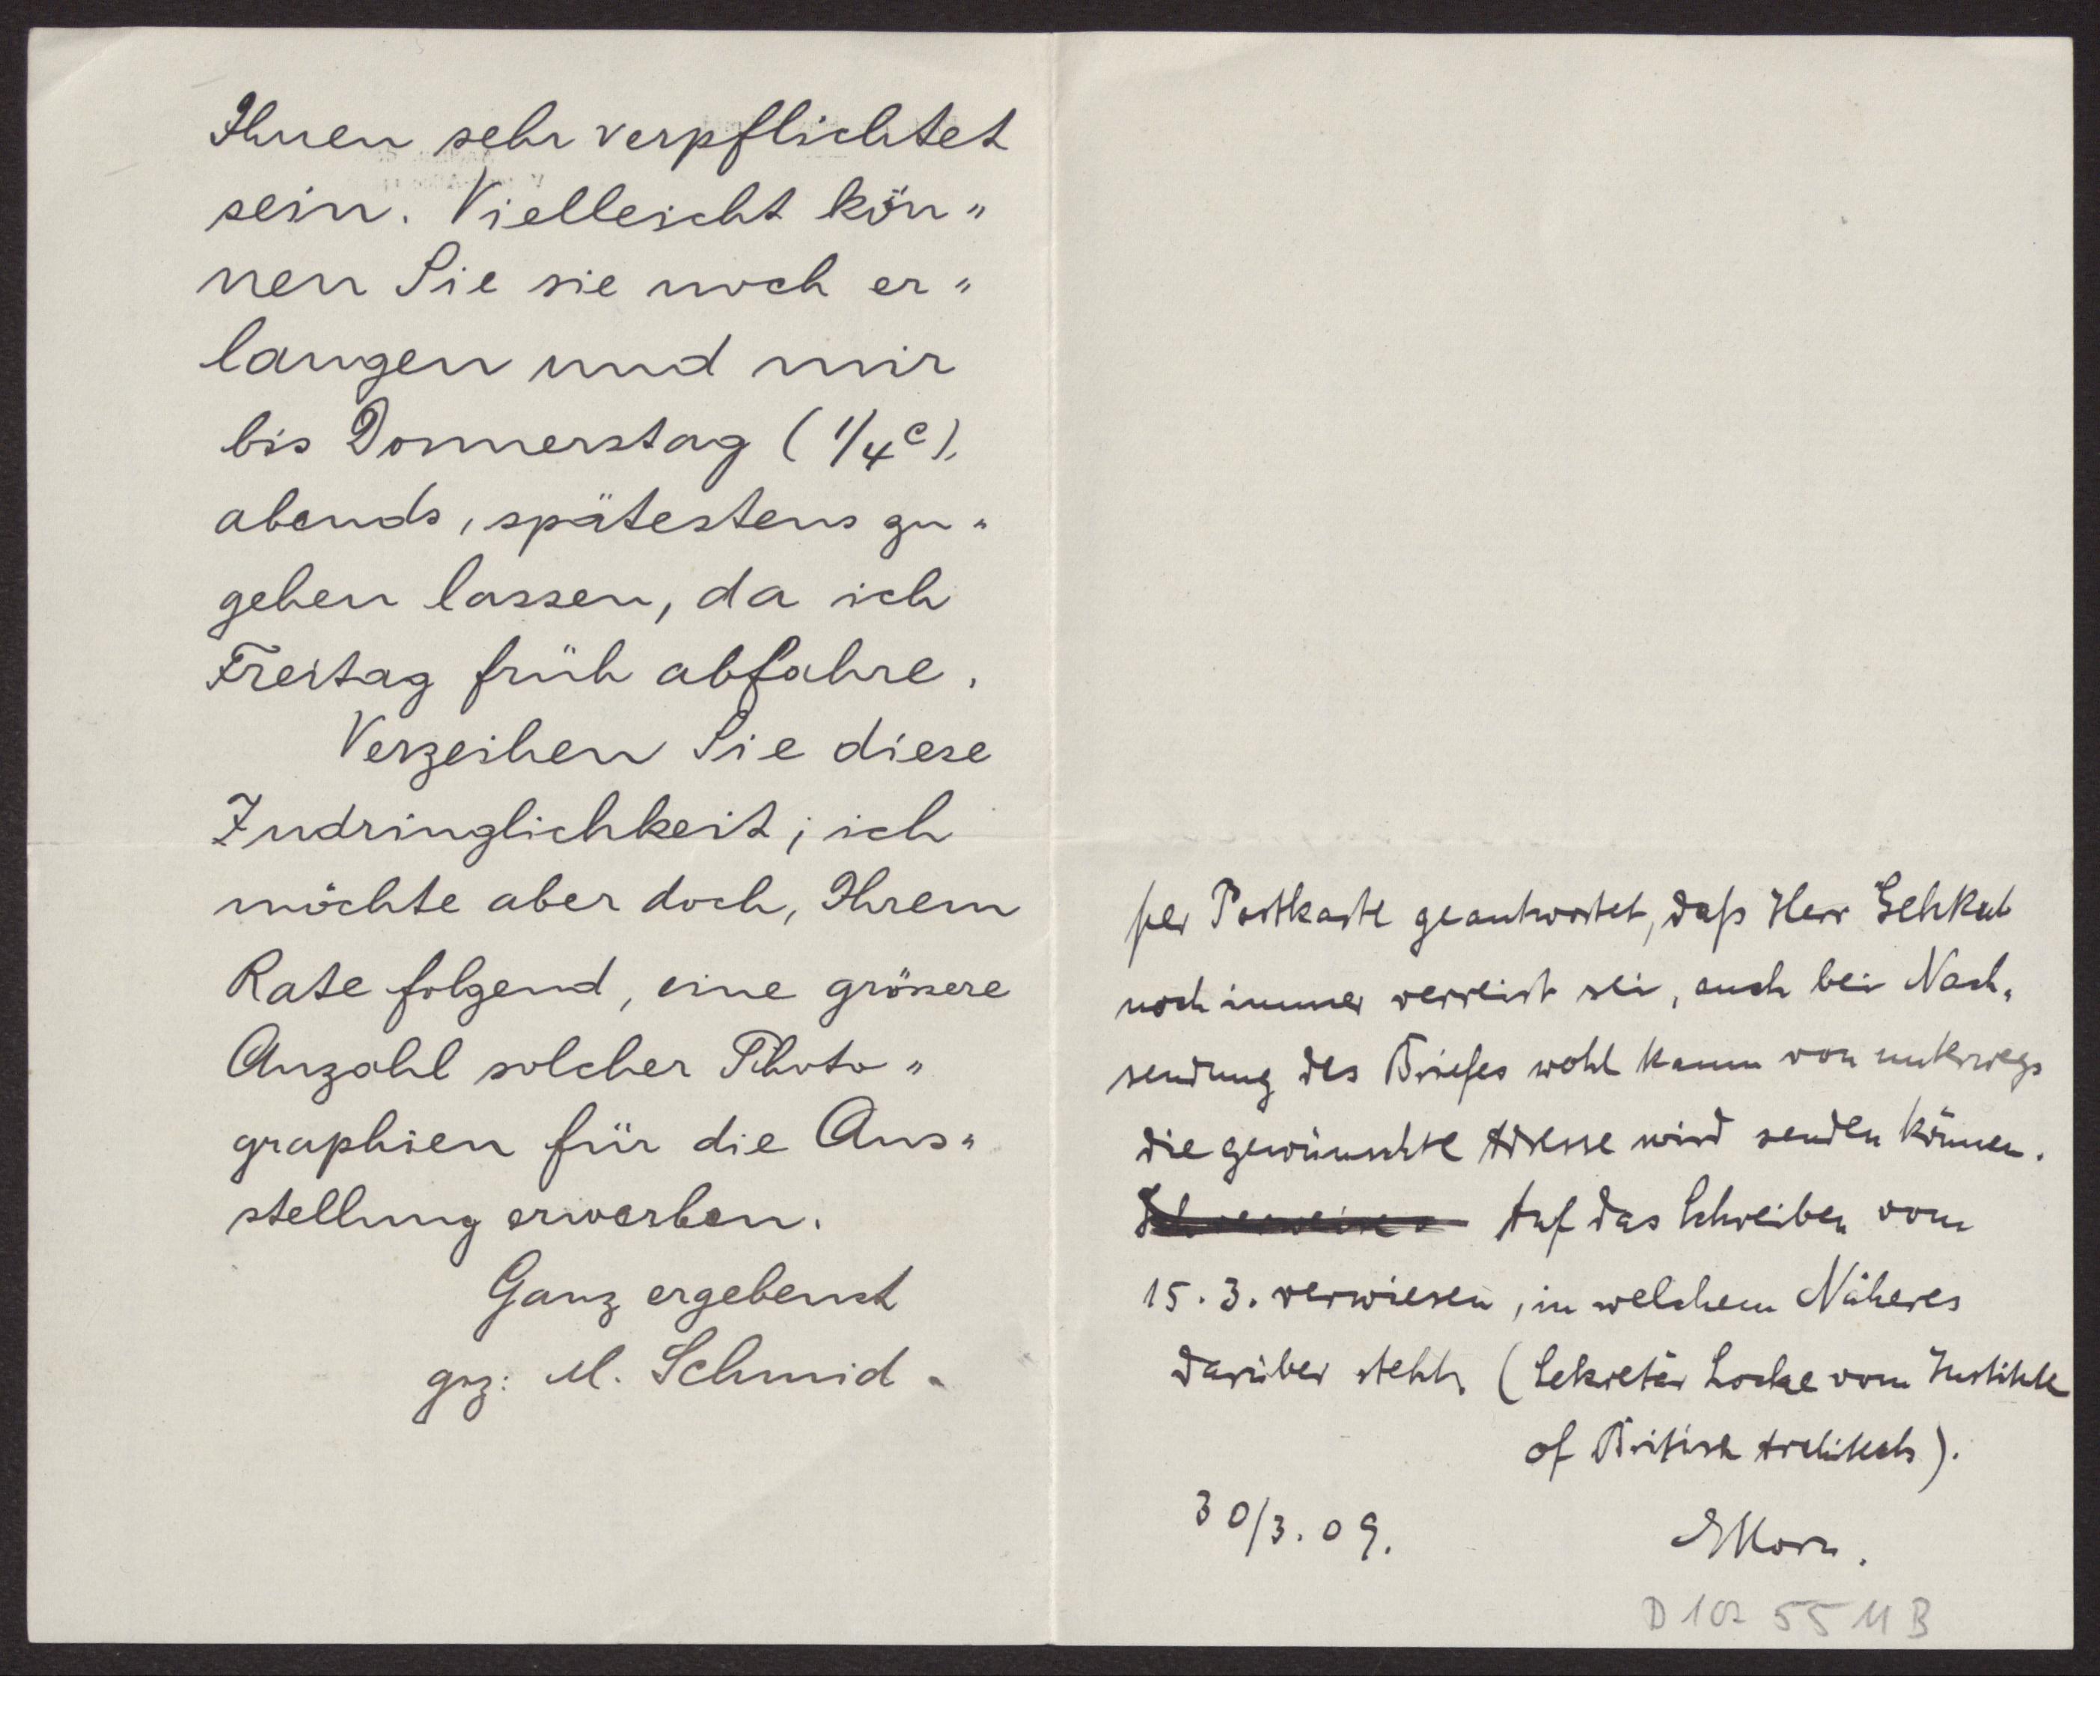 Ihnen sehr verpflichtet
sein. Vielleicht kön„
nen Sie sie noch er„
langen und mir
bis Donnerstag (1/4 c),
abends, spätestens zu„
gehen lassen, da ich
Freitag früh abfahre.
Verzeihen Sie diese
Zudringlichkeit; ich
möchte aber doch, Ihrem
Rate folgend, eine grössere
Anzahl solcher Photo„
graphien für die Aus„
stellung erwerben.
Ganz ergebenst
gez: M. Schmid.
per Postkarte geantwortet, daß Herr GehRat
noch immer verreist sei, auch bei Nach„
sendung des Briefes wohl kaum von unterwegs
die gewünschte Adresse wird senden können.
Auf das Schreiben vom
15.3. verwiesen, in welchem Näheres
darüber steht. (Sekretär Locke vom Institute
of British Architects).
30/3.09.
EKorn.
D 102 55 11 B